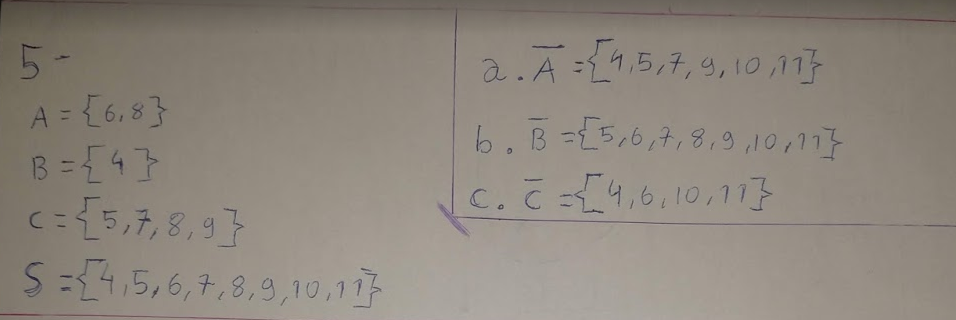 5-
A = {6,8}
B = {4}
C = {5,7,8,9}
S = {4,5,6,7,8,9,10,11}
a. A̅ = {4,5,7,9,10,11}
b. B̅ = {5,6,7,8,9,10,11}
c. C̅ = {4,6,10,11}